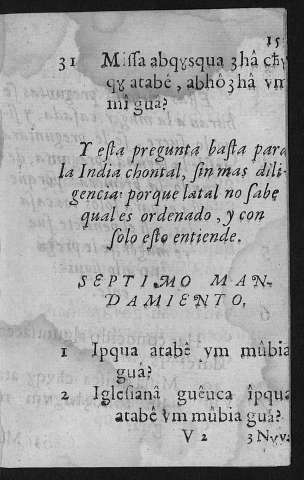 15
31 Missa abqỹsqua ʒhâ chỹ
qỹ atabé, abhôʒhâ ỹm
mî gua?
Y esta pregunta basta para
la India chontal, sin mas dili-
gencia: porque la tal no sabe
qual es ordenado, y con
solo esto entiende.
SEPTIMO MAN-
DAMIENTO,
1 Ipqua atabê ỹm mûbia
guá?
2 Iglesianâ guêuca îpqua
atabê ỹm mûbia guá?
V 2